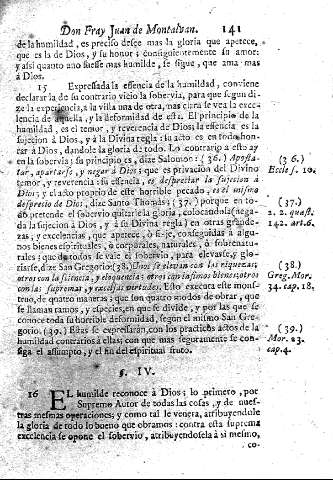 Don Fray Juan de Montalvan. 141
de la humildad, es preciso desee mas la gloria que apetece,
que es la de Dios, y su honor: consiguientemente su amor:
y assi quanto uno fuesse mas humilde, se sigue, que ama mas
à Dios.
15 Expressada la essencia de la humildad, conviene
declarar la de su contrario vicio la sobervia, para que segun di-
ze la experiencia, à la vista una de otra, mas clara se vea la exce-
lencia de aquella, y la deformidad de este. El principio de la
humildad, es el temor, y reverencia de Dios: la essencia es la
sujecion à Dios, y à la Divina regla: su acto es en todo hon-
rar à Dios, dandole la gloria de todo. Lo contrario à esto ay
en la sobervia: su principio es, dize Salomon: (36.) Aposta-
tar, apartarse, y negar à Dios: que es privacion del Divino
temor, y reverencia: su essencia, es despreciar la sujecion à
Dios; y el acto proprio de este horrible pecado, es el mismo
desprecio de Dios, dize Santo Thomàs (37.) porque en to-
do pretende el sobervio quitarle la gloria, colocandola (nega-
da la sujecion à Dios, y à su Divina regla) en otras grande-
zas, y excelencias, que apetece, ò finge, conseguidas à algu-
nos bienes espirituales, ò corporales, naturales, ò sobrenatu-
rales: que de todos se vale el sobervio, para elevarse, y glo-
riarse, dize San Gregorio (38.) Unos se elevan con las riquezas;
otros con la sciencia, y eloquencia; otros con infimos bienes; otros
con las supremas, y excelsas virtudes. Esto executa este mons-
truo, de quatro maneras; que son quatro modos de obrar, que
se llaman ramos, y especies, en que se divide, y por las que se
conoce toda su horrible deformidad, segun el mismo San Gre-
gorio. (39.) Estas se expressaràn, con los practicos actos de la
humildad contrarios à ellas; con que mas seguramente se consi-
ga el assumpto, y el fin del espiritual fruto.
(36.)
Eccles. 10.
(37.)
2. 2. quæst.
142. art. 6.
(38.)
Greg. Mor.
34. cap. 18.
(39.)
Mor. 23.
cap. 4.
§. IV.
16 EL humilde reconoce à Dios; lo primero, por
Supremo Autor de todas las cosas, y de nues-
tras mesmas operaciones; y como tal le venera, atribuyendole
la gloria de todo lo bueno que obramos: contra esta suprema
excelencia se opone el sobervio, atribuyendosela à sì mesmo,
co-